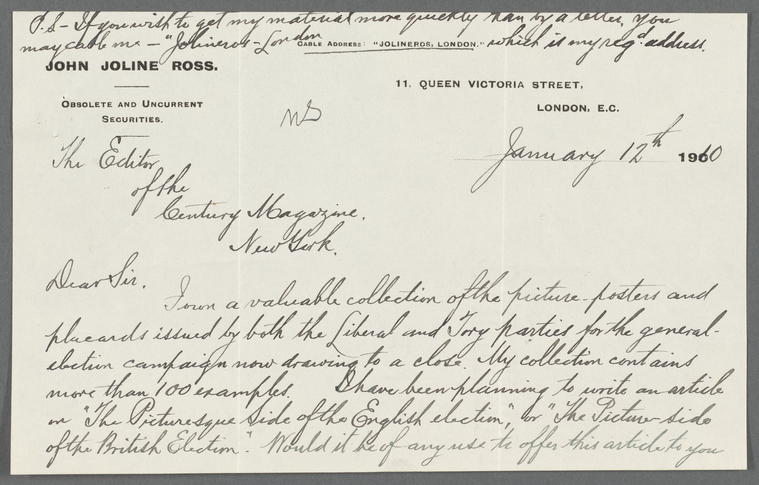 P.S - If you wish to get my material more quickly than by a letter, you
may cable me - "Jolineros - London
CABLE ADDRESS: "JOLINEROS, LONDON." which is my regd. address.
JOHN JOLINE ROSS.
11. QUEEN VICTORIA STREET,
OBSOLETE AND UNCURRENT
SECURITIES.
LONDON, E.C.
January 12th 1910
The Editor
of the
Century Magazine.
New York.
Dear Sir.
I own a valuable collection of the picture-posters and
placards issued by both the Liberal and Tory parties for the general-
election campaign now drawing to a close. My collection contains
more than 100 examples. I have been planning to write an article
on "The Picturesque Side of the English election", or "The Picture-side
of the British Election". Would it be of any use to offer this article to you